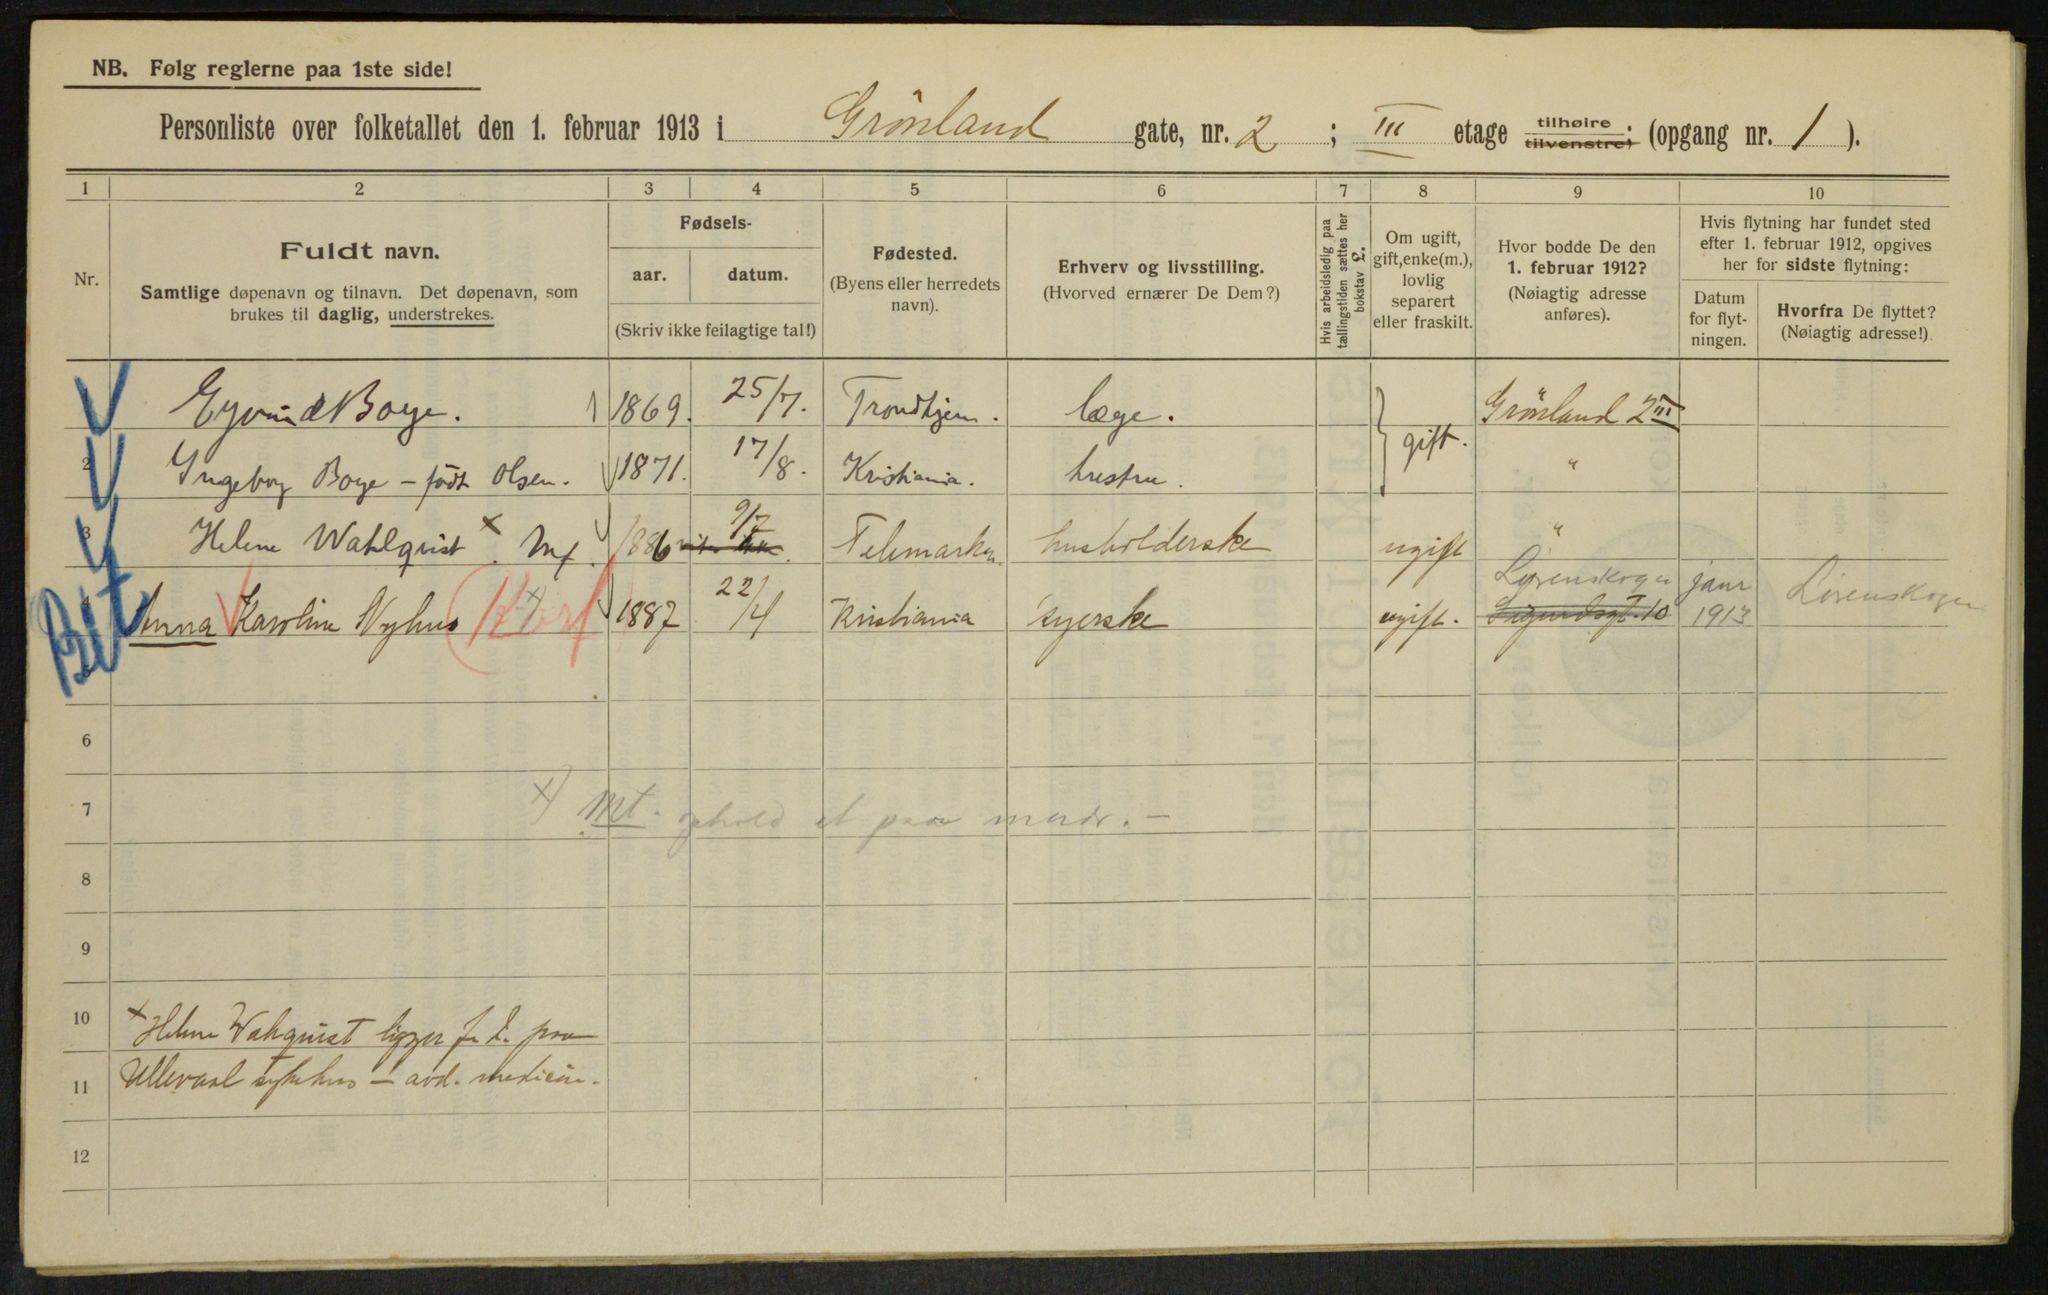 NB. Følg reglerne paa 1ste side!
Personliste over folketallet den 1. februar 1913 i Grönland gate, nr. 2 ; III etage tilhøire tilvenstre; (opgang nr. 1 ).
1 2 3 4 5 6 7 8 9 10
Nr.
Fuldt navn.
Samtlige døpenavn og tilnavn. Det døpenavn, som
brukes til daglig, understrekes.
Fødsels-
aar. datum.
(Skriv ikke feilagtige tal!)
Fødested.
(Byens eller herredets
navn).
Erhverv og livsstilling.
(Hvorved ernærer De Dem?)
Hvis arbeidsledig paa
tællingstiden sættes her
bokstav L.
Om ugift,
gift, enke(m.),
lovlig
separert
eller fraskilt.
Hvor bodde De den
1. februar 1912?
(Nøiagtig adresse
anføres).
Hvis flytning har fundet sted
efter 1. februar 1912, opgives
her for sidste flytning:
Datum
for flyt-
ningen.
Hvorfra De flyttet?
(Nøiagtig adresse!)
Eyvind Boye. 1869. 25/7. Trondhjem. læge. gift. Grönland 2 III
2 Ingeborg Boye - født Olsen. 1871. 17/8. Kristiania. hustru. "
3 Helene Wahlquist x 1886 9/7 Telemarken husholderske ugift "
4 Anna Karoline Nyhus 1887 22/4 Kristiania syerske ugift. Lørenskogen Sigurdsgt. 10 janr 1913 Lørenskogen
Bet
5
6
7 x) Mt. ophold et paar mndr. —
8
9
10 x Helene Wahlquist ligger f. t. paa
11 Ullevaal sykehus — avd. medicin.
12